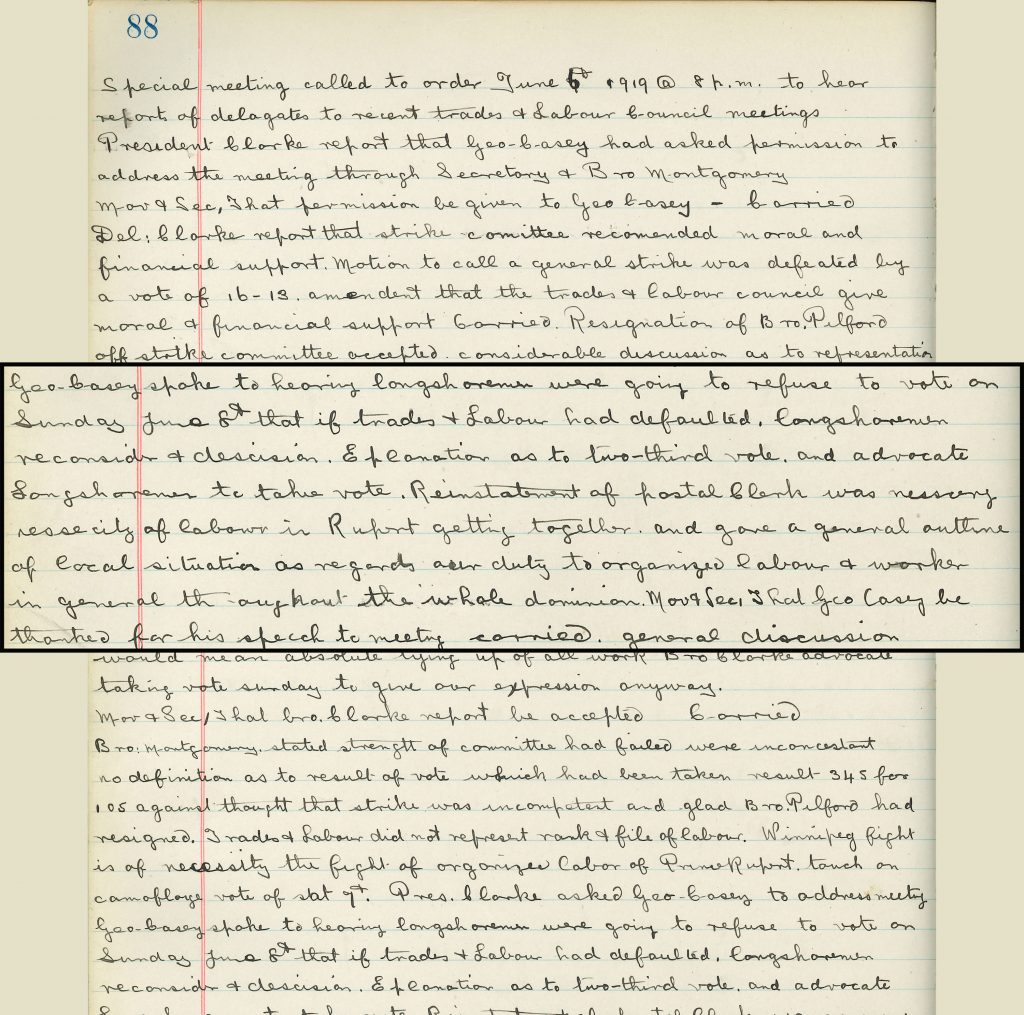 88
Special meeting called to order June 6th 1919 @ 8 p.m. to hear
reports of delagates to recent trades & Labour Council meetings
President Clarke report that Geo-Casey had asked permission to
address the meeting through Secretary & Bro Montgomery
Mov & Sec, That permission be given to Geo Casey - Carried
Del: Clarke report that strike comittee recomended moral and
financial support. Motion to call a general strike was defeated by
a vote of 16-13. amendent that the trades & labour council give
moral & financial support Carried. Resignation of Bro. Pilford
off strike committee accepted. considerable discussion as to representation
Geo-Casey spoke to hearing longshoremen were going to refuse to vote on
Sunday June 8th that if trades & Labour had defaulted, longshoremen
reconsidr & descision. Explanation as to two-third vote. and advocate
Longshoremen to take vote. Reinstatement of postal Clerk was nessecry
nessecity of labour in Rupert getting together. and gave a general outline
of local situation as regards our duty to organized labour & worker
in general th oughout the whole dominion. Mov & Sec, That Geo Casey be
thanked for his speech to meetng carried. general discussion
would mean absolute tying up of all work Bro Clarke advocate
taking vote sunday to give our expression anyway.
Mov & Sec, That bro. Clarke report be accepted Carried
Bro: Montgomery. stated strengtt of committee had failed were inconcestant
no definition as to result of vote which had been taken result 345 for
105 against thought that strike was incompetent and glad Bro. Pilford had
resigned. Trades & Labour did not represent rank & file of labour. Winnipeg fight
is of necessity the fight of organized Labor of Prince Rupert. touch on
camofloye vote of sat 7th. Pres. Clarke asked Geo-Casey to address meeting
Geo-Casey spoke to hearing longshoremen were going to refuse to vote on
Sunday June 8th that if trades & Labour had defaulted, longshoremen
reconsidr & descision. Explanation as to two-third vote. and advocate